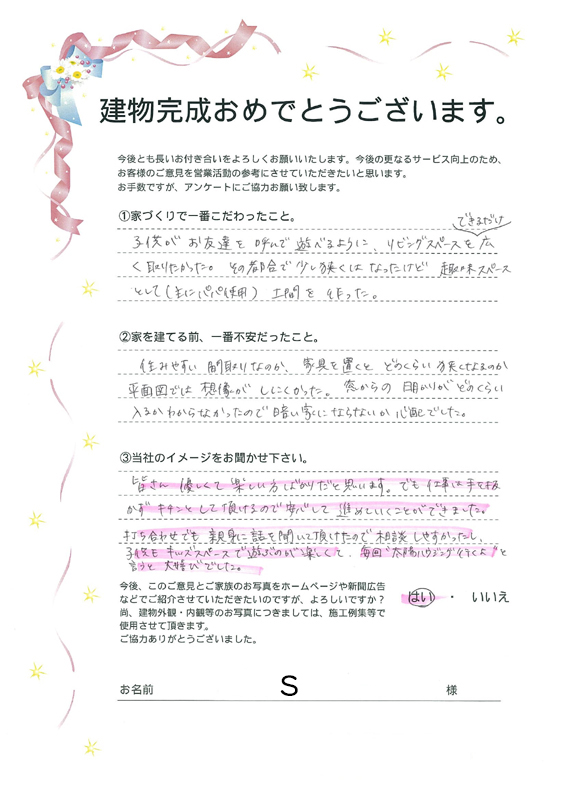 建物完成おめでとうございます。
今後とも長いお付き合いをよろしくお願いいたします。今後の更なるサービス向上のため、
お客様のご意見を営業活動の参考にさせていただきたいと思います。
お手数ですが、アンケートにご協力お願い致します。
①家づくりで一番こだわったこと。
できるだけ
子供がお友達を呼んで遊べるように、リビングスペースを広
く取りたかった。その都合で少し狭くはなったけど趣味スペース
として(主にパパ使用)土間を作った。
②家を建てる前、一番不安だったこと。
住みやすい間取りなのか、家具を置くとどのくらい狭くなるのか
平面図では想像がしにくかった。窓からの日かりがどのくらい
入るかわからなかったので暗い家にならないか心配でした。
③当社のイメージをお聞かせ下さい。
皆さん優しくて楽しい方ばかりだと思います。でも仕事は手を抜
かずキチンとして頂けるので安心して進めていくことができました。
打ち合わせでも親身に話を聞いて頂けたので相談しやすかったし、
子供もキッズスペースで遊ぶのが楽しくて、毎回"太陽ハウジング行くよ"と
言うと大喜びでした。
今後、このご意見とご家族のお写真をホームページや新聞広告
などでご紹介させていただきたいのですが、よろしいですか？
はい ・ いいえ
尚、建物外観・内観等のお写真につきましては、施工例集等で
使用させて頂きます。
ご協力ありがとうございました。
お名前 S 様